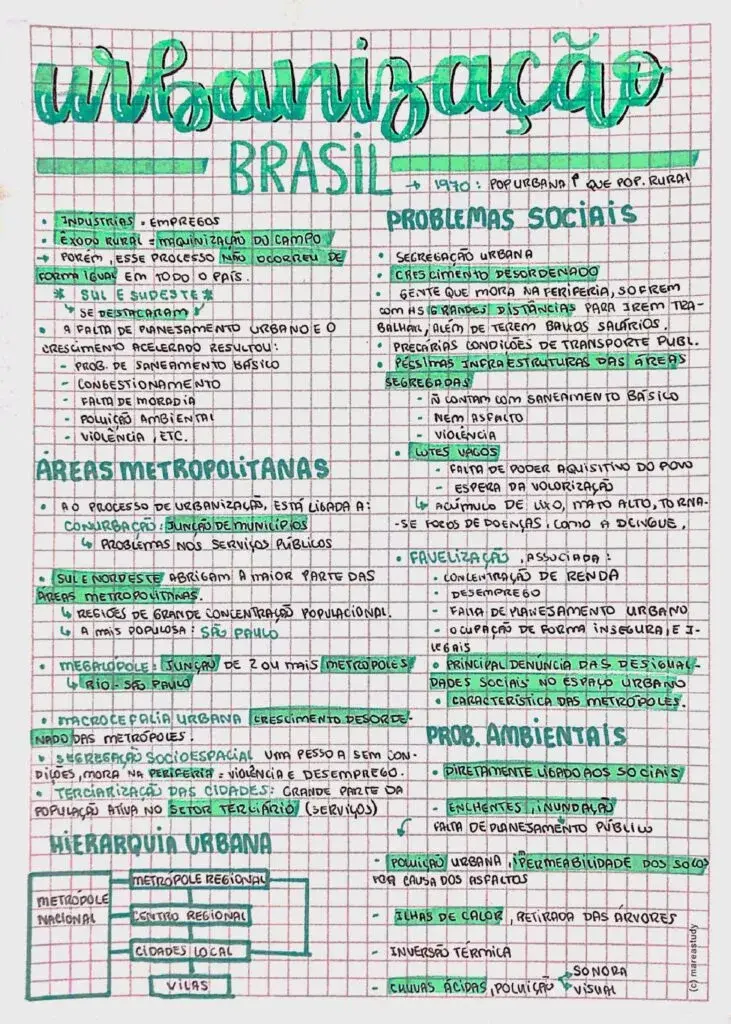 urbanização
BRASIL
→ 1970: POP URBANA ↑ QUE POP. RURAL
• INDÚSTRIAS • EMPREGOS
• ÊXODO RURAL = MAQUINIZAÇÃO DO CAMPO
→ PORÉM, ESSE PROCESSO NÃO OCORREU DE
FORMA IGUAL EM TODO O PAÍS.
* SUL E SUDESTE *
↳ SE DESTACARAM ↲
• A FALTA DE PLANESAMENTO URBANO E O
CRESCIMENTO ACELERADO RESULTOU:
- PROB. DE SANEAMENTO BÁSICO
- CONGESTIONAMENTO
- FALTA DE MORADIA
- POLUIÇÃO AMBIENTAL
- VIOLÊNCIA, ETC.
ÁREAS METROPOLITANAS
• AO PROCESSO DE URBANIZAÇÃO, ESTÁ LIGADA A:
CONURBAÇÃO: JUNÇÃO DE MUNICÍPIOS
↳ PROBLEMAS NOS SERVIÇOS PÚBLICOS
• SUL E NORDESTE ABRIGAM A MAIOR PARTE DAS
ÁREAS METROPOLITANAS.
↳ REGIÕES DE GRANDE CONCENTRAÇÃO POPULACIONAL.
↳ A MAIS POPULOSA: SÃO PAULO
• MEGALÓPOLE: JUNÇÃO DE 2 OU MAIS METRÓPOLES
↳ RIO - SÃO PAULO
• MACROCEFALIA URBANA CRESCIMENTO DESORDE-
NADO DAS METRÓPOLES.
• SEGREGAÇÃO SOCIOESPACIAL UMA PESSOA SEM CON-
DIÇÕES, MORA NA PERIFERIA = VIOLÊNCIA E DESEMPREGO.
• TERCIARIZAÇÃO DAS CIDADES: GRANDE PARTE DA
POPULAÇÃO ATIVA NO SETOR TERCIÁRIO (SERVIÇOS)
HIERARQUIA URBANA
METRÓPOLE
NACIONAL
METRÓPOLE REGIONAL
CENTRO REGIONAL
CIDADES LOCAL
VILAS
PROBLEMAS SOCIAIS
• SEGREGAÇÃO URBANA
• CRESCIMENTO DESORDENADO
• GENTE QUE MORA NA PERIFERIA, SOFREM
COM AS GRANDES DISTÂNCIAS PARA IREM TRA-
BALHAR, ALÉM DE TEREM BAIXOS SALÁRIOS.
• PRECÁRIAS CONDIÇÕES DE TRANSPORTE PUBL.
• PÉSSIMAS INFRAESTRUTURAS DAS ÁREAS
SEGREGADAS
- Ñ CONTAM COM SANEAMENTO BÁSICO
- NEM ASFALTO
- VIOLÊNCIA
• LOTES VAGOS
- FALTA DE PODER AQUISITIVO DO POVO
- ESPERA DA VOLORIZAÇÃO
↳ ACÚMULO DE LIXO, MATO ALTO, TORNA-
-SE FOCOS DE DOENÇAS, COMO A DENGUE.
• FAVELIZAÇÃO, ASSOCIADA:
- CONCENTRAÇÃO DE RENDA
- DESEMPREGO
- FALTA DE PLANESAMENTO URBANO
- OCUPAÇÃO DE FORMA INSEGURA, E I-
LEGAIS
• PRINCIPAL DENÚNCIA DAS DESIGUAL-
DADES SOCIAIS NO ESPAÇO URBANO
• CARACTERÍSTICA DAS METRÓPOLES.
PROB. AMBIENTAIS
• DIRETAMENTE LIGADO AOS SOCIAIS
• ENCHENTES, INUNDAÇÃO
FALTA DE PLANESAMENTO PÚBLICO
- POLUIÇÃO URBANA, IMPERMEABILIDADE DOS SOLOS
POR CAUSA DOS ASFALTOS
- ILHAS DE CALOR, RETIRADA DAS ÁRVORES
- INVERSÃO TÉRMICA
- CHUVAS ÁCIDAS, POLUIÇÃO
SONORA
VISUAL
(c) mareastudy